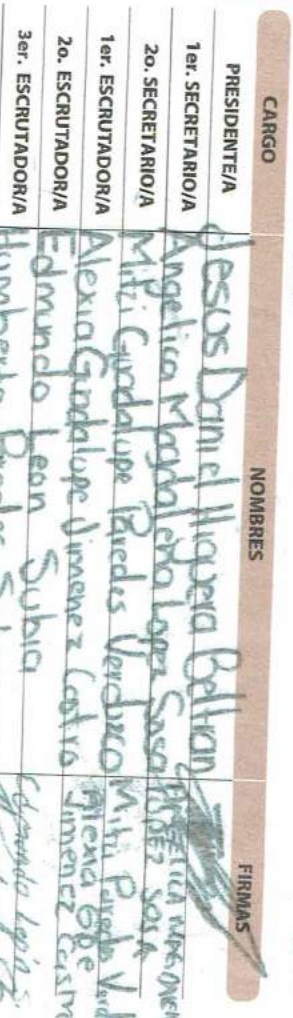 CARGO NOMBRES FIRMAS
PRESIDENTE/A Jesus Daniel Higuera Beltran
1er. SECRETARIO/A Angelica Magdalena Lopez Sosa ANGELICA LOPEZ SOSA
2o. SECRETARIO/A Mitzi Guadalupe Paredes Verduzco Mitzi Paredes Verd
1er. ESCRUTADOR/A Alexia Guadalupe Jimenez Castro Alexia Gpe Jimenez Castro
2o. ESCRUTADOR/A Edmundo Leon Subia Edmundo León S.
3er. ESCRUTADOR/A Humberto Paredes